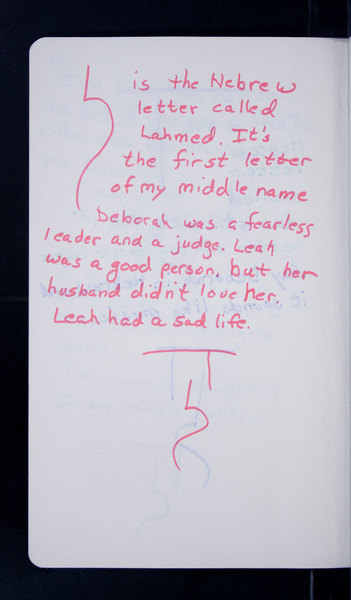 ל is the Hebrew
letter called
Lahmed. It's
the first letter
of my middle name
Deborah was a fearless
leader and a judge. Leah
was a good person, but her
husband didn't love her.
Leah had a sad life.
ד
ל